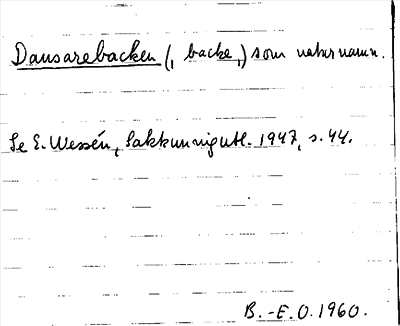 Dansarebacken (, backe,) som naturnamn.
Se E. Wessén, Sakkunnigutl. 1947, s. 44.
B.-E.O. 1960.